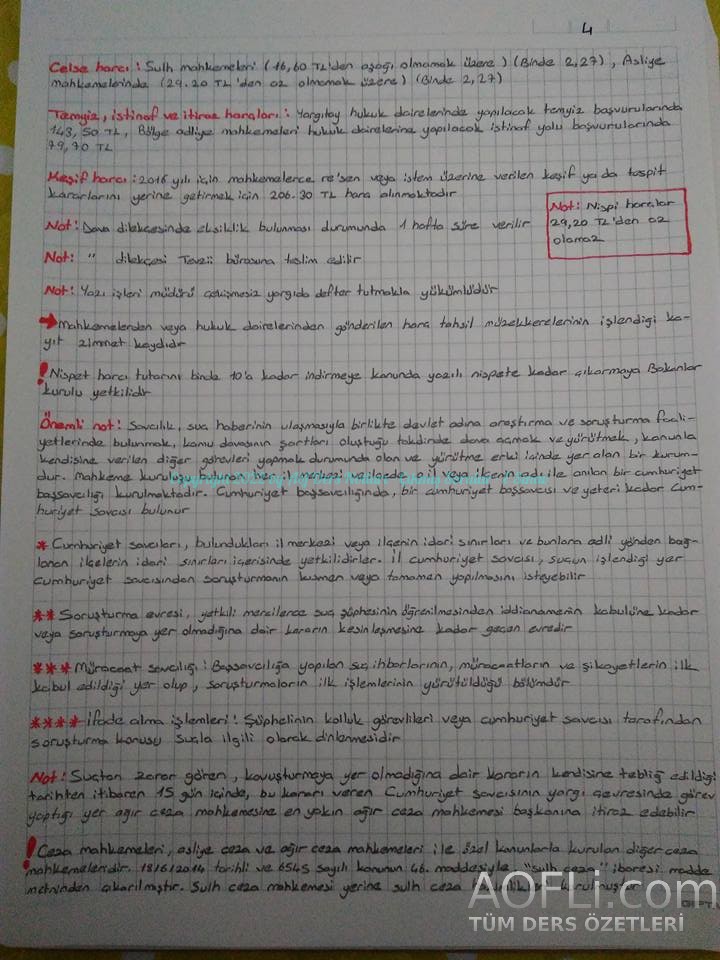 4
Celse harcı: Sulh mahkemeleri (16,60 TL'den aşağı olmamak üzere) (Binde 2,27), Asliye
mahkemelerinde (29.20 TL'den az olmamak üzere) (Binde 2,27)
Temyiz, istinaf ve itiraz harçları: Yargıtay hukuk dairelerinde yapılacak temyiz başvurularında
143,50 TL, Bölge adliye mahkemeleri hukuk dairelerine yapılacak istinaf yolu başvurularında
79,70 TL
Keşif harcı: 2016 yılı için mahkemelerce re'sen veya istem üzerine verilen keşif ya da tespit
kararlarını yerine getirmek için 206.30 TL harç alınmaktadır
Not: Nispi harçlar
29,20 TL'den az
olamaz
Not: Dava dilekçesinde eksiklik bulunması durumunda 1 hafta süre verilir
Not: " dilekçesi Tevzii bürosuna teslim edilir
Not: Yazı işleri müdürü çekişmesiz yargıda defter tutmakla yükümlüdür
→ Mahkemelerden veya hukuk dairelerinden gönderilen harç tahsil müzekkerelerinin işlendiği ka-
yıt zimmet kaydıdır
! Nispet harcı tutarını binde 10'a kadar indirmeye kanunda yazılı nispete kadar çıkarmaya Bakanlar
kurulu yetkilidir
Önemli not: Savcılık, suç haberinin ulaşmasıyla birlikte devlet adına araştırma ve soruşturma faali-
yetlerinde bulunmak, kamu davasının şartları oluştuğu takdirde dava açmak ve yürütmek, kanunla
kendisine verilen diğer görevleri yapmak durumunda olan ve yürütme erki içinde yer alan bir kurum-
dur. Mahkeme kuruluşu bulunan her il merkezi ve ilçede o il veya ilçenin adı ile anılan bir cumhuriyet
başsavcılığı kurulmaktadır. Cumhuriyet başsavcılığında, bir cumhuriyet başsavcısı ve yeteri kadar cum-
huriyet savcısı bulunur
* Cumhuriyet savcıları, bulundukları il merkezi veya ilçenin idari sınırları ve bunlara adli yönden bağ-
lanan ilçelerin idari sınırları içerisinde yetkilidirler. İl cumhuriyet savcısı, suçun işlendiği yer
cumhuriyet savcısından soruşturmanın kısmen veya tamamen yapılmasını isteyebilir
** Soruşturma evresi, yetkili mercilerce suç şüphesinin öğrenilmesinden iddianamenin kabulüne kadar
veya soruşturmaya yer olmadığına dair kararın kesinleşmesine kadar geçen evredir
*** Müracaat savcılığı: Başsavcılığa yapılan suç ihbarlarının, müracaatların ve şikayetlerin ilk
kabul edildiği yer olup, soruşturmaların ilk işlemlerinin yürütüldüğü bölümdür
**** İfade alma işlemleri: Şüphelinin kolluk görevlileri veya cumhuriyet savcısı tarafından
soruşturma konusu suçla ilgili olarak dinlenmesidir
Not: Suçtan zarar gören, kovuşturmaya yer olmadığına dair kararın kendisine tebliğ edildiği
tarihten itibaren 15 gün içinde, bu kararı veren Cumhuriyet savcısının yargı çevresinde görev
yaptığı yer ağır ceza mahkemesine en yakın ağır ceza mahkemesi başkanına itiraz edebilir
! Ceza mahkemeleri, asliye ceza ve ağır ceza mahkemeleri ile özel kanunlarla kurulan diğer ceza
mahkemeleridir. 18/6/2014 tarihli ve 6545 sayılı kanunun 46. maddesiyle, "sulh ceza" ibaresi madde
metninden çıkarılmıştır. Sulh ceza mahkemesi yerine sulh ceza hakimlikleri kurulmuştur
AOFLi.com
TÜM DERS ÖZETLERİ